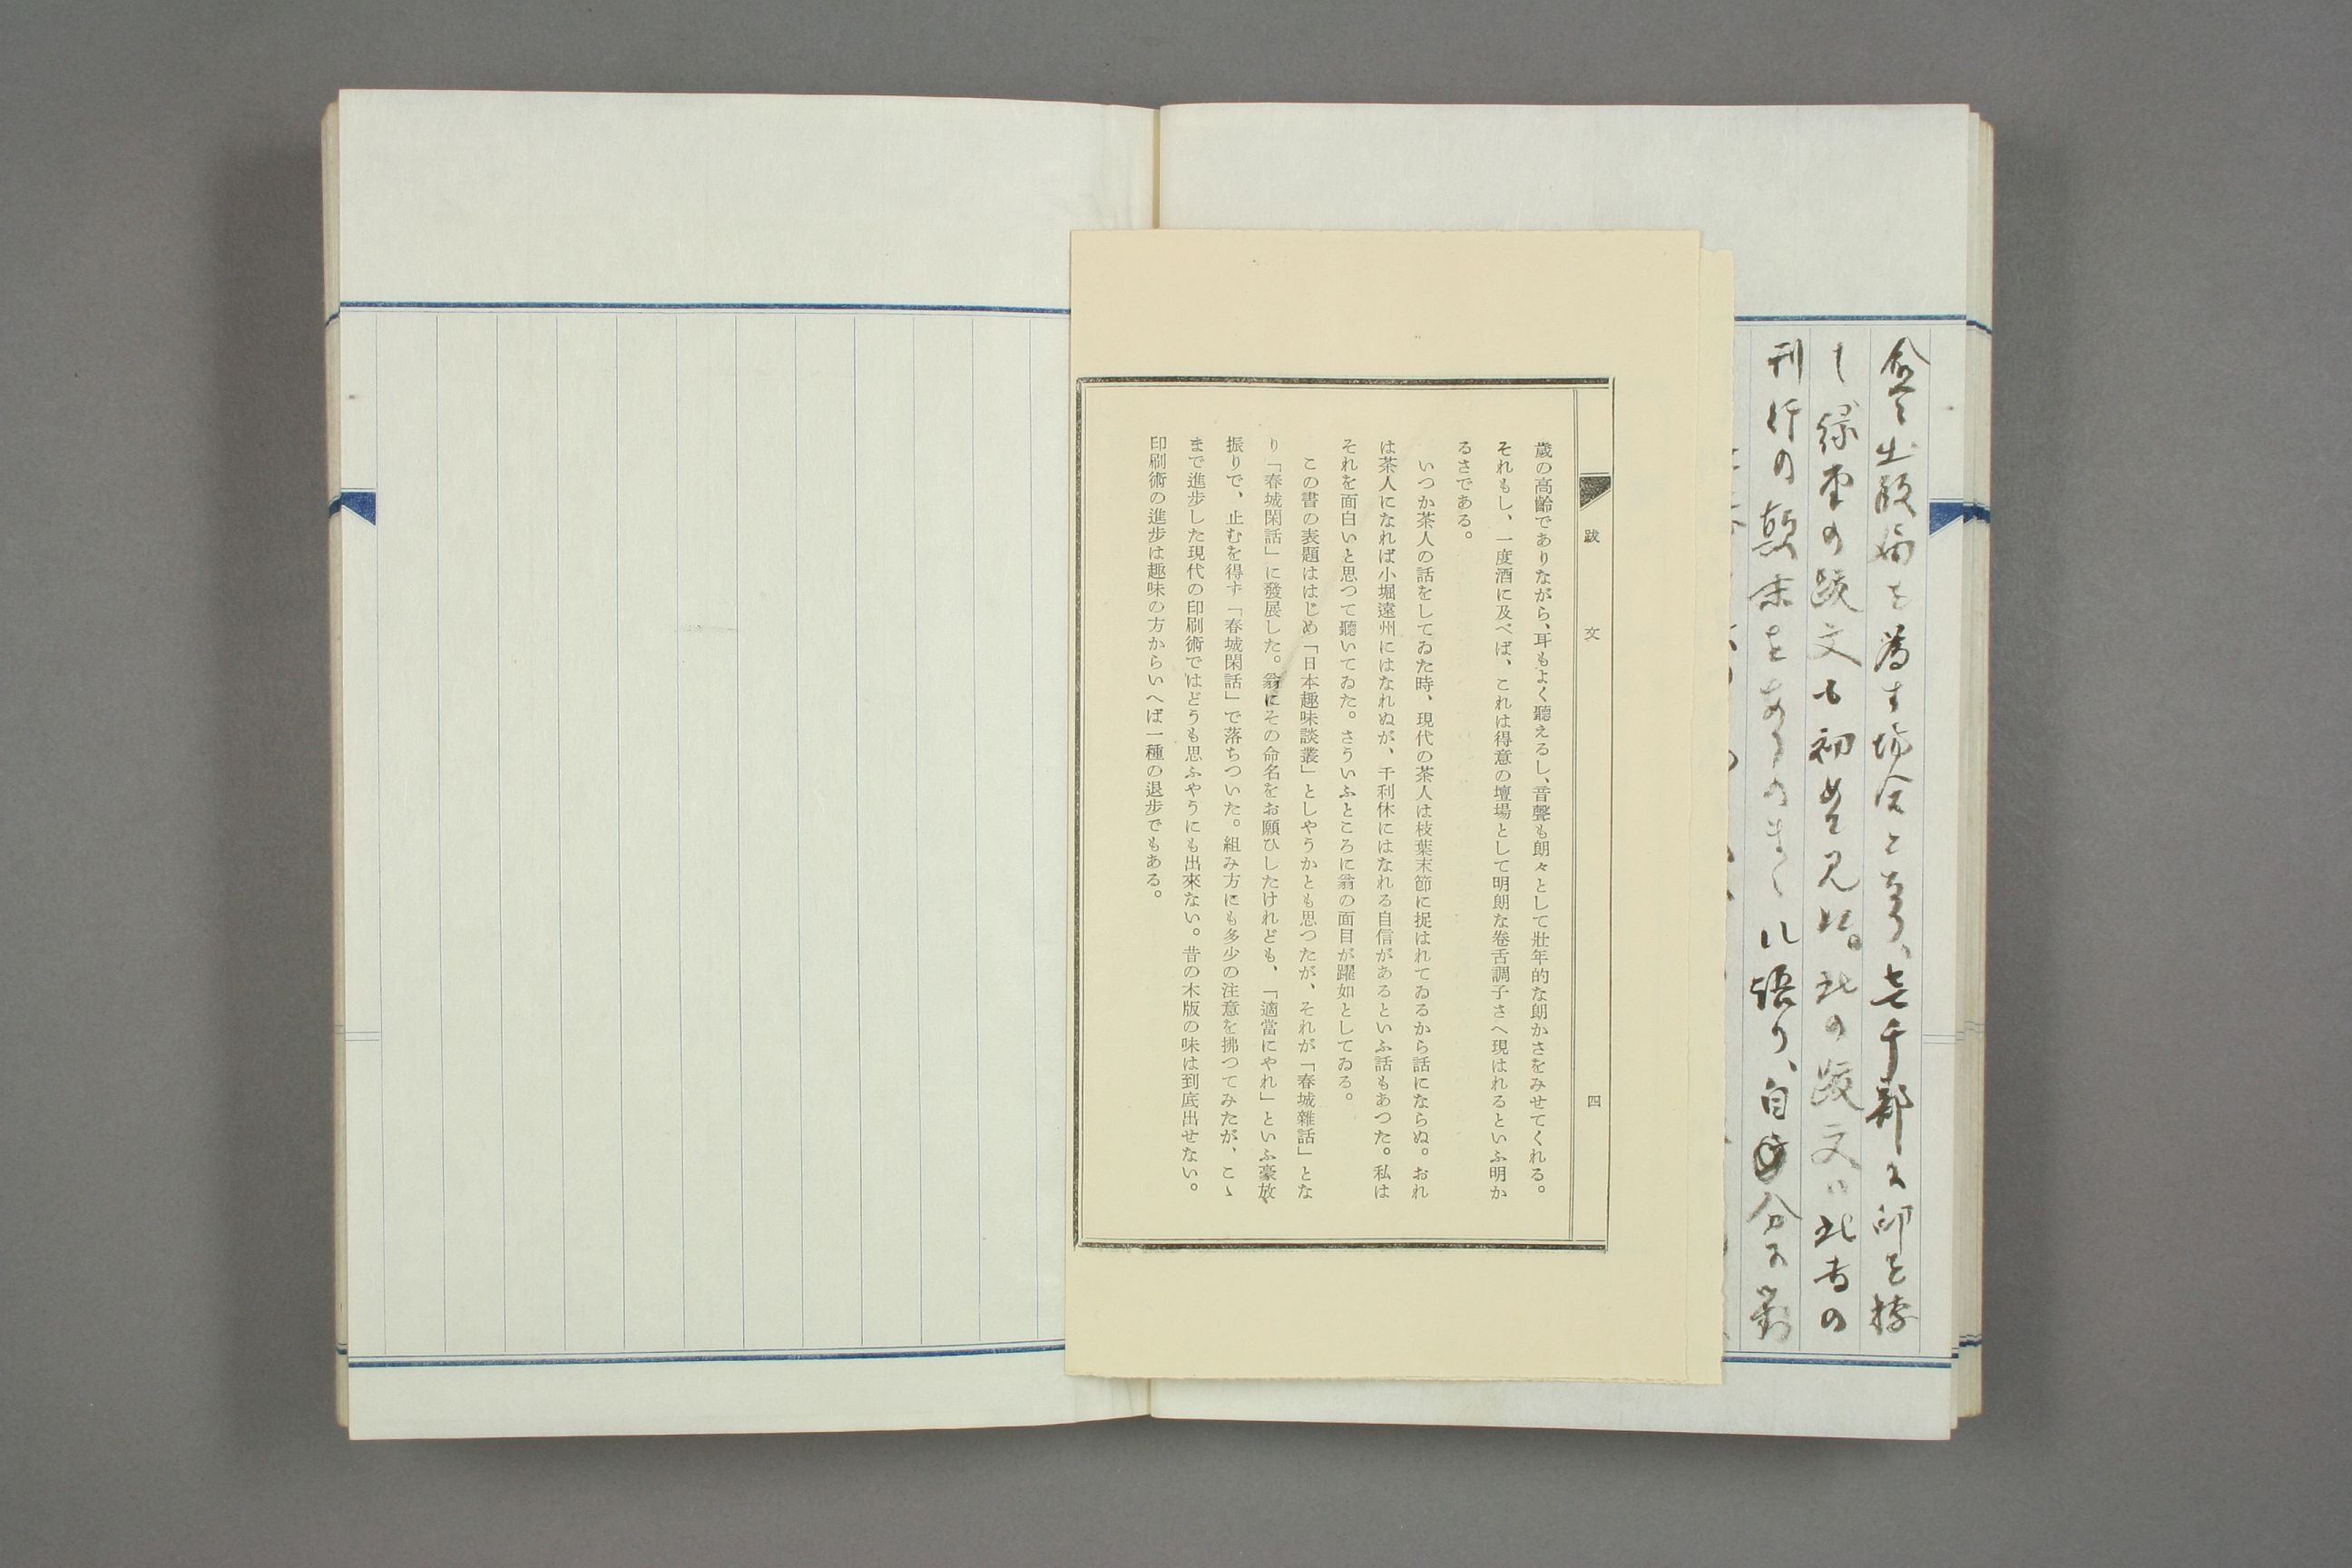 愈々出版届を為す場合と為り、壱千部に印を捺
し緑堂の跋文も初めて見た。此の跋文は此書の
刊行の顛末をありのまゝに語り、自分に対
跋文
四
歲の高齡でありながら、耳もよく聽えるし、音聲も朗々として壯年的な朗かさをみせてくれる。
それもし、一度酒に及べば、これは得意の壇場として明朗な卷舌調子さへ現はれるといふ明か
るさである。
いつか茶人の話をしてゐた時、現代の茶人は枝葉末節に捉はれてゐるから話にならぬ。おれ
は茶人になれば小堀遠州にはなれぬが、千利休にはなれる自信があるといふ話もあつた。私は
それを面白いと思つて聽いてゐた。さういふところに翁の面目が躍如としてゐる。
この書の表題ははじめ「日本趣味談叢」としやうかとも思つたが、それが「春城雜話」とな
り「春城閑話」に發展した。翁にその命名をお願ひしたけれども、「適當にやれ」といふ豪放
振りで、止むを得ず「春城閑話」で落ちついた。組み方にも多少の注意を拂つてみたが、こゝ
まで進步した現代の印刷術ではどうも思ふやうにも出來ない。昔の木版の味は到底出せない。
印刷術の進步は趣味の方からいへば一種の退步でもある。